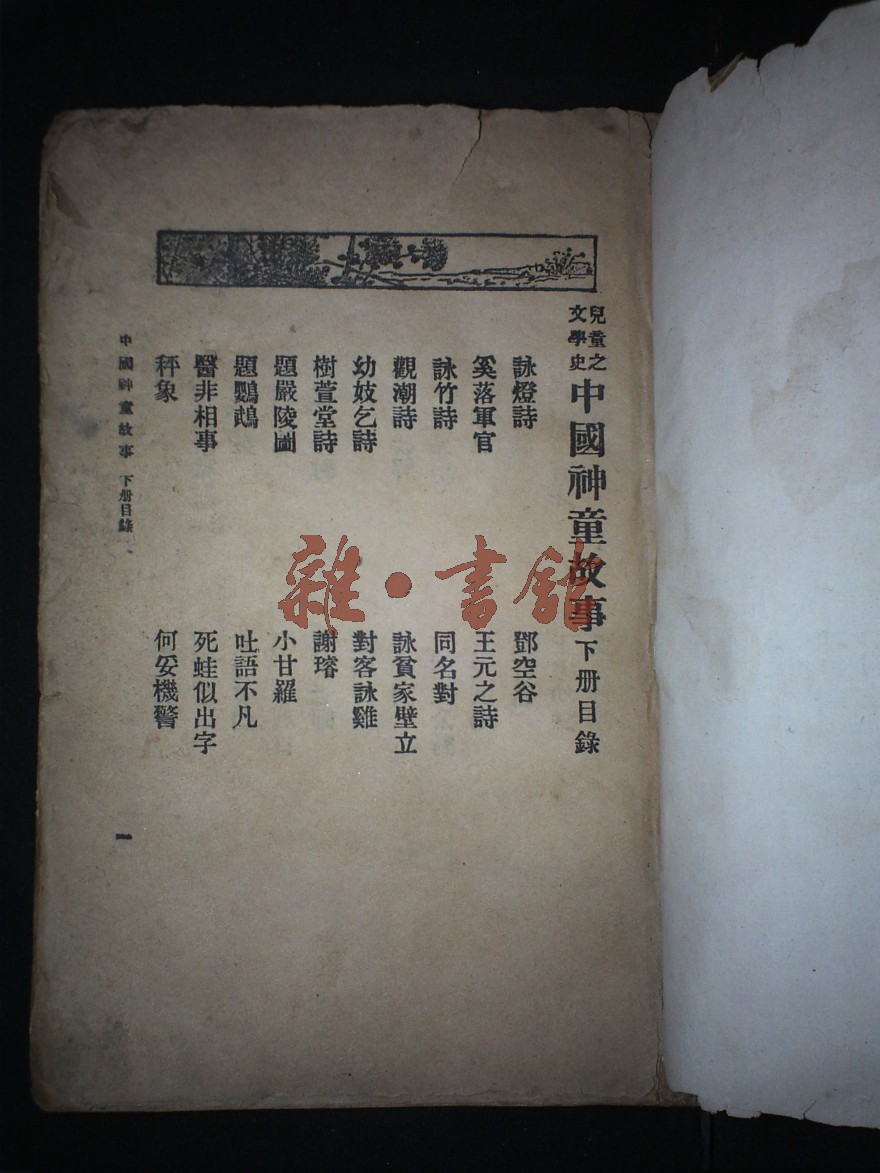 兒童之
文學史
中國神童故事下册目錄
詠燈詩
鄧空谷
奚落軍官
王元之詩
詠竹詩
同名對
觀潮詩
詠貧家壁立
幼妓乞詩
對客詠雞
樹萱堂詩
謝璿
題嚴陵圖
小甘羅
題鸚鵡
吐語不凡
醫非相事
死蛙似出字
秤象
何妥機警
中國神童故事 下册目錄
一
雜·書館